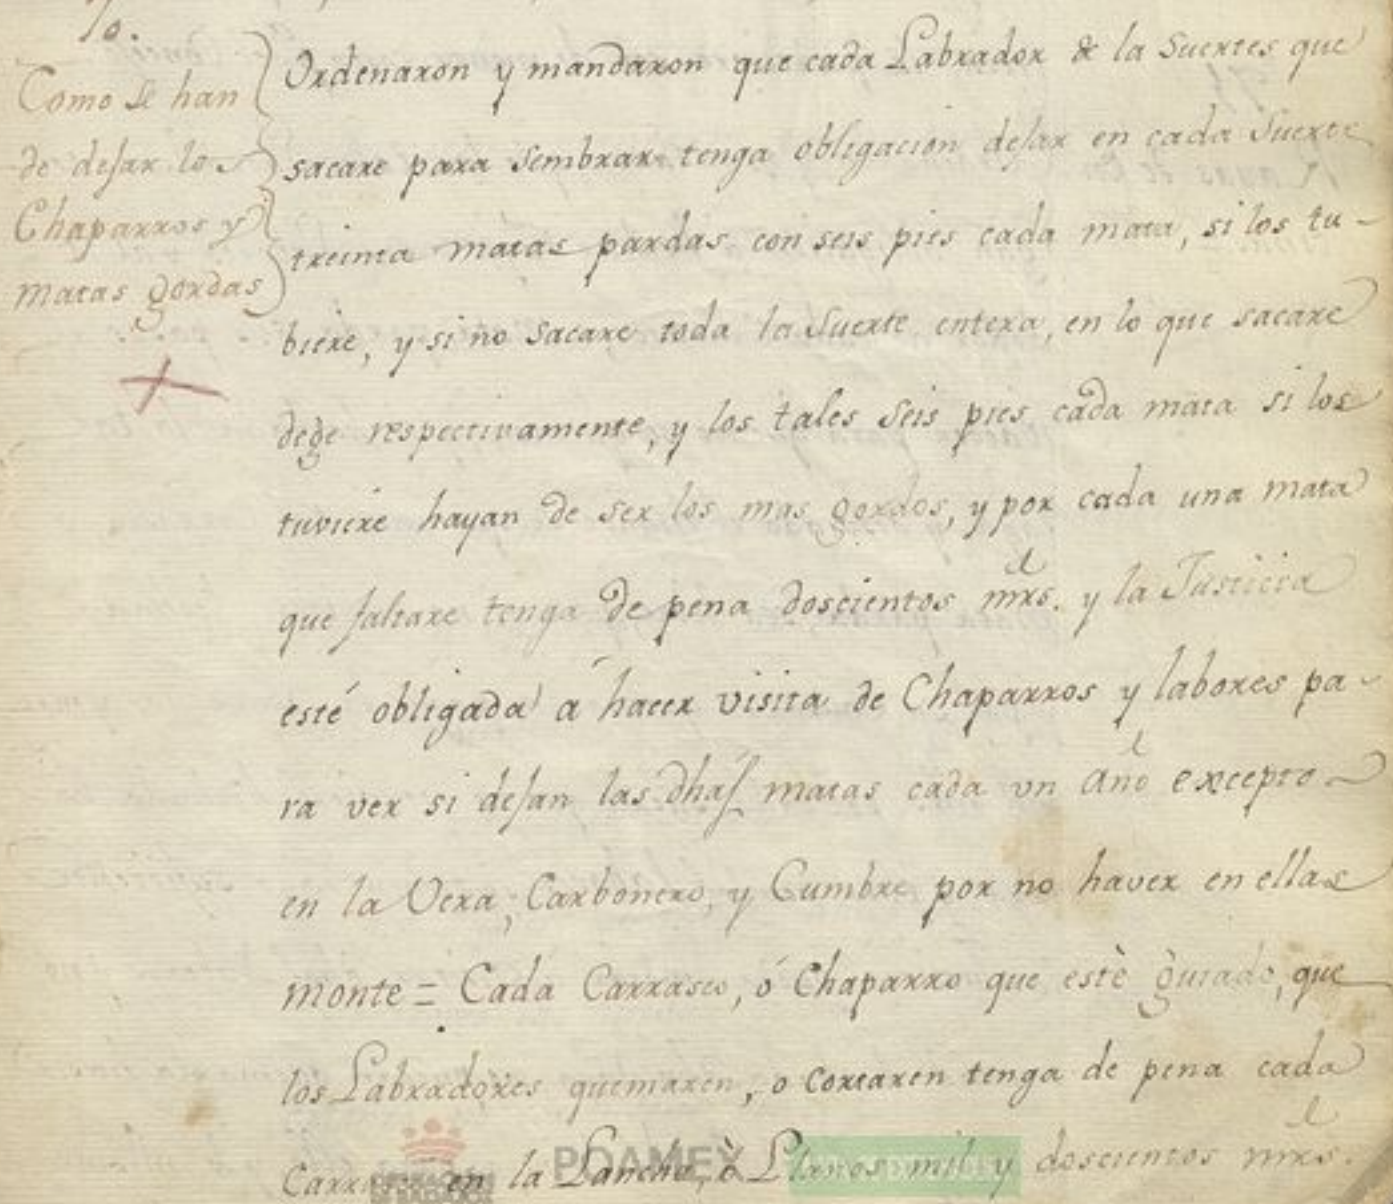 70.
Como se han
de desar los
Chaparros y
matas gordas
Ordenaron y mandaron que cada Labrador de la Suertes que
sacare para sembrar tenga obligacion desar en cada Suerte
treinta matas pardas con seis pies cada mata, si los tu-
biere, y si no sacare toda la Suerte entera, en lo que sacare
dege respectivamente, y los tales seis pies cada mata si los
tuviere hayan de ser los mas gordos, y por cada una mata
que faltare tenga de pena doscientos mrs. y la Justicia
esté obligada á hacer visita de Chaparros y labores pa-
ra ver si desan las dhas matas cada un Año excepto
en la Vera, Carbonero, y Cumbre por no haver en ellas
monte = Cada Carrasco, ó Chaparro que estè guiado, que
los Labradores quemaren, o cortaren tenga de pena cada
en la Lancha, ò Llanos mil y doscientos mrs.
PDAMEX